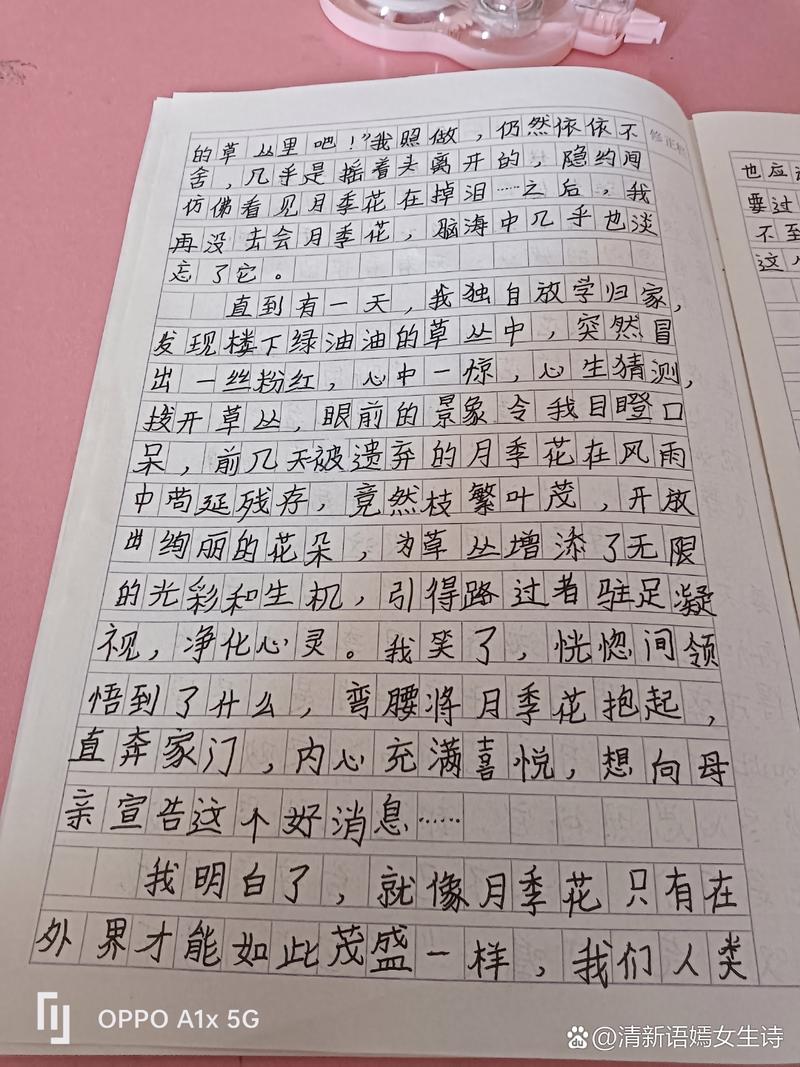 的草丛里吧！”我照做，仍然依依不
舍，几乎是摇着头离开的，隐约间
仿佛看见月季花在掉泪……之后，我
再没去会月季花，脑海中几乎也淡
忘了它。
直到有一天，我独自放学归家，
发现楼下绿油油的草丛中，突然冒
出一丝粉红，心中一惊，心生猜测，
拨开草丛，眼前的景象令我目瞪口
呆，前几天被遗弃的月季花在风雨
中苟延残存，竟然枝繁叶茂，开放
出绚丽的花朵，为草丛增添了无限
的光彩和生机，引得路过者驻足凝
视，净化心灵。我笑了，恍惚间领
悟到了什么，弯腰将月季花抱起，
直奔家门，内心充满喜悦，想向母
亲宣告这个好消息……
我明白了，就像月季花只有在
外界才能如此茂盛一样，我们人类
修正栏
也应
要过
不到
这
OPPO A1x 5G
@清新语嫣女生诗